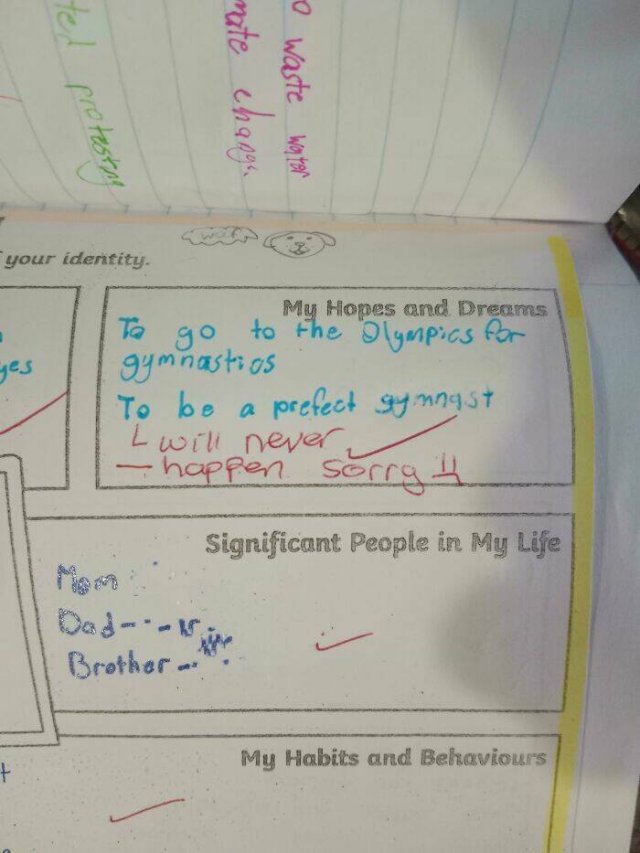 o waste water
mate change.
ted protesting
your identity.
My Hopes and Dreams
yes
To go to the Olympics for
gymnastics
To be a prefect gymnast
will never
happen sorry
Significant People in My Life
Mom
Dad
Brother
My Habits and Behaviours